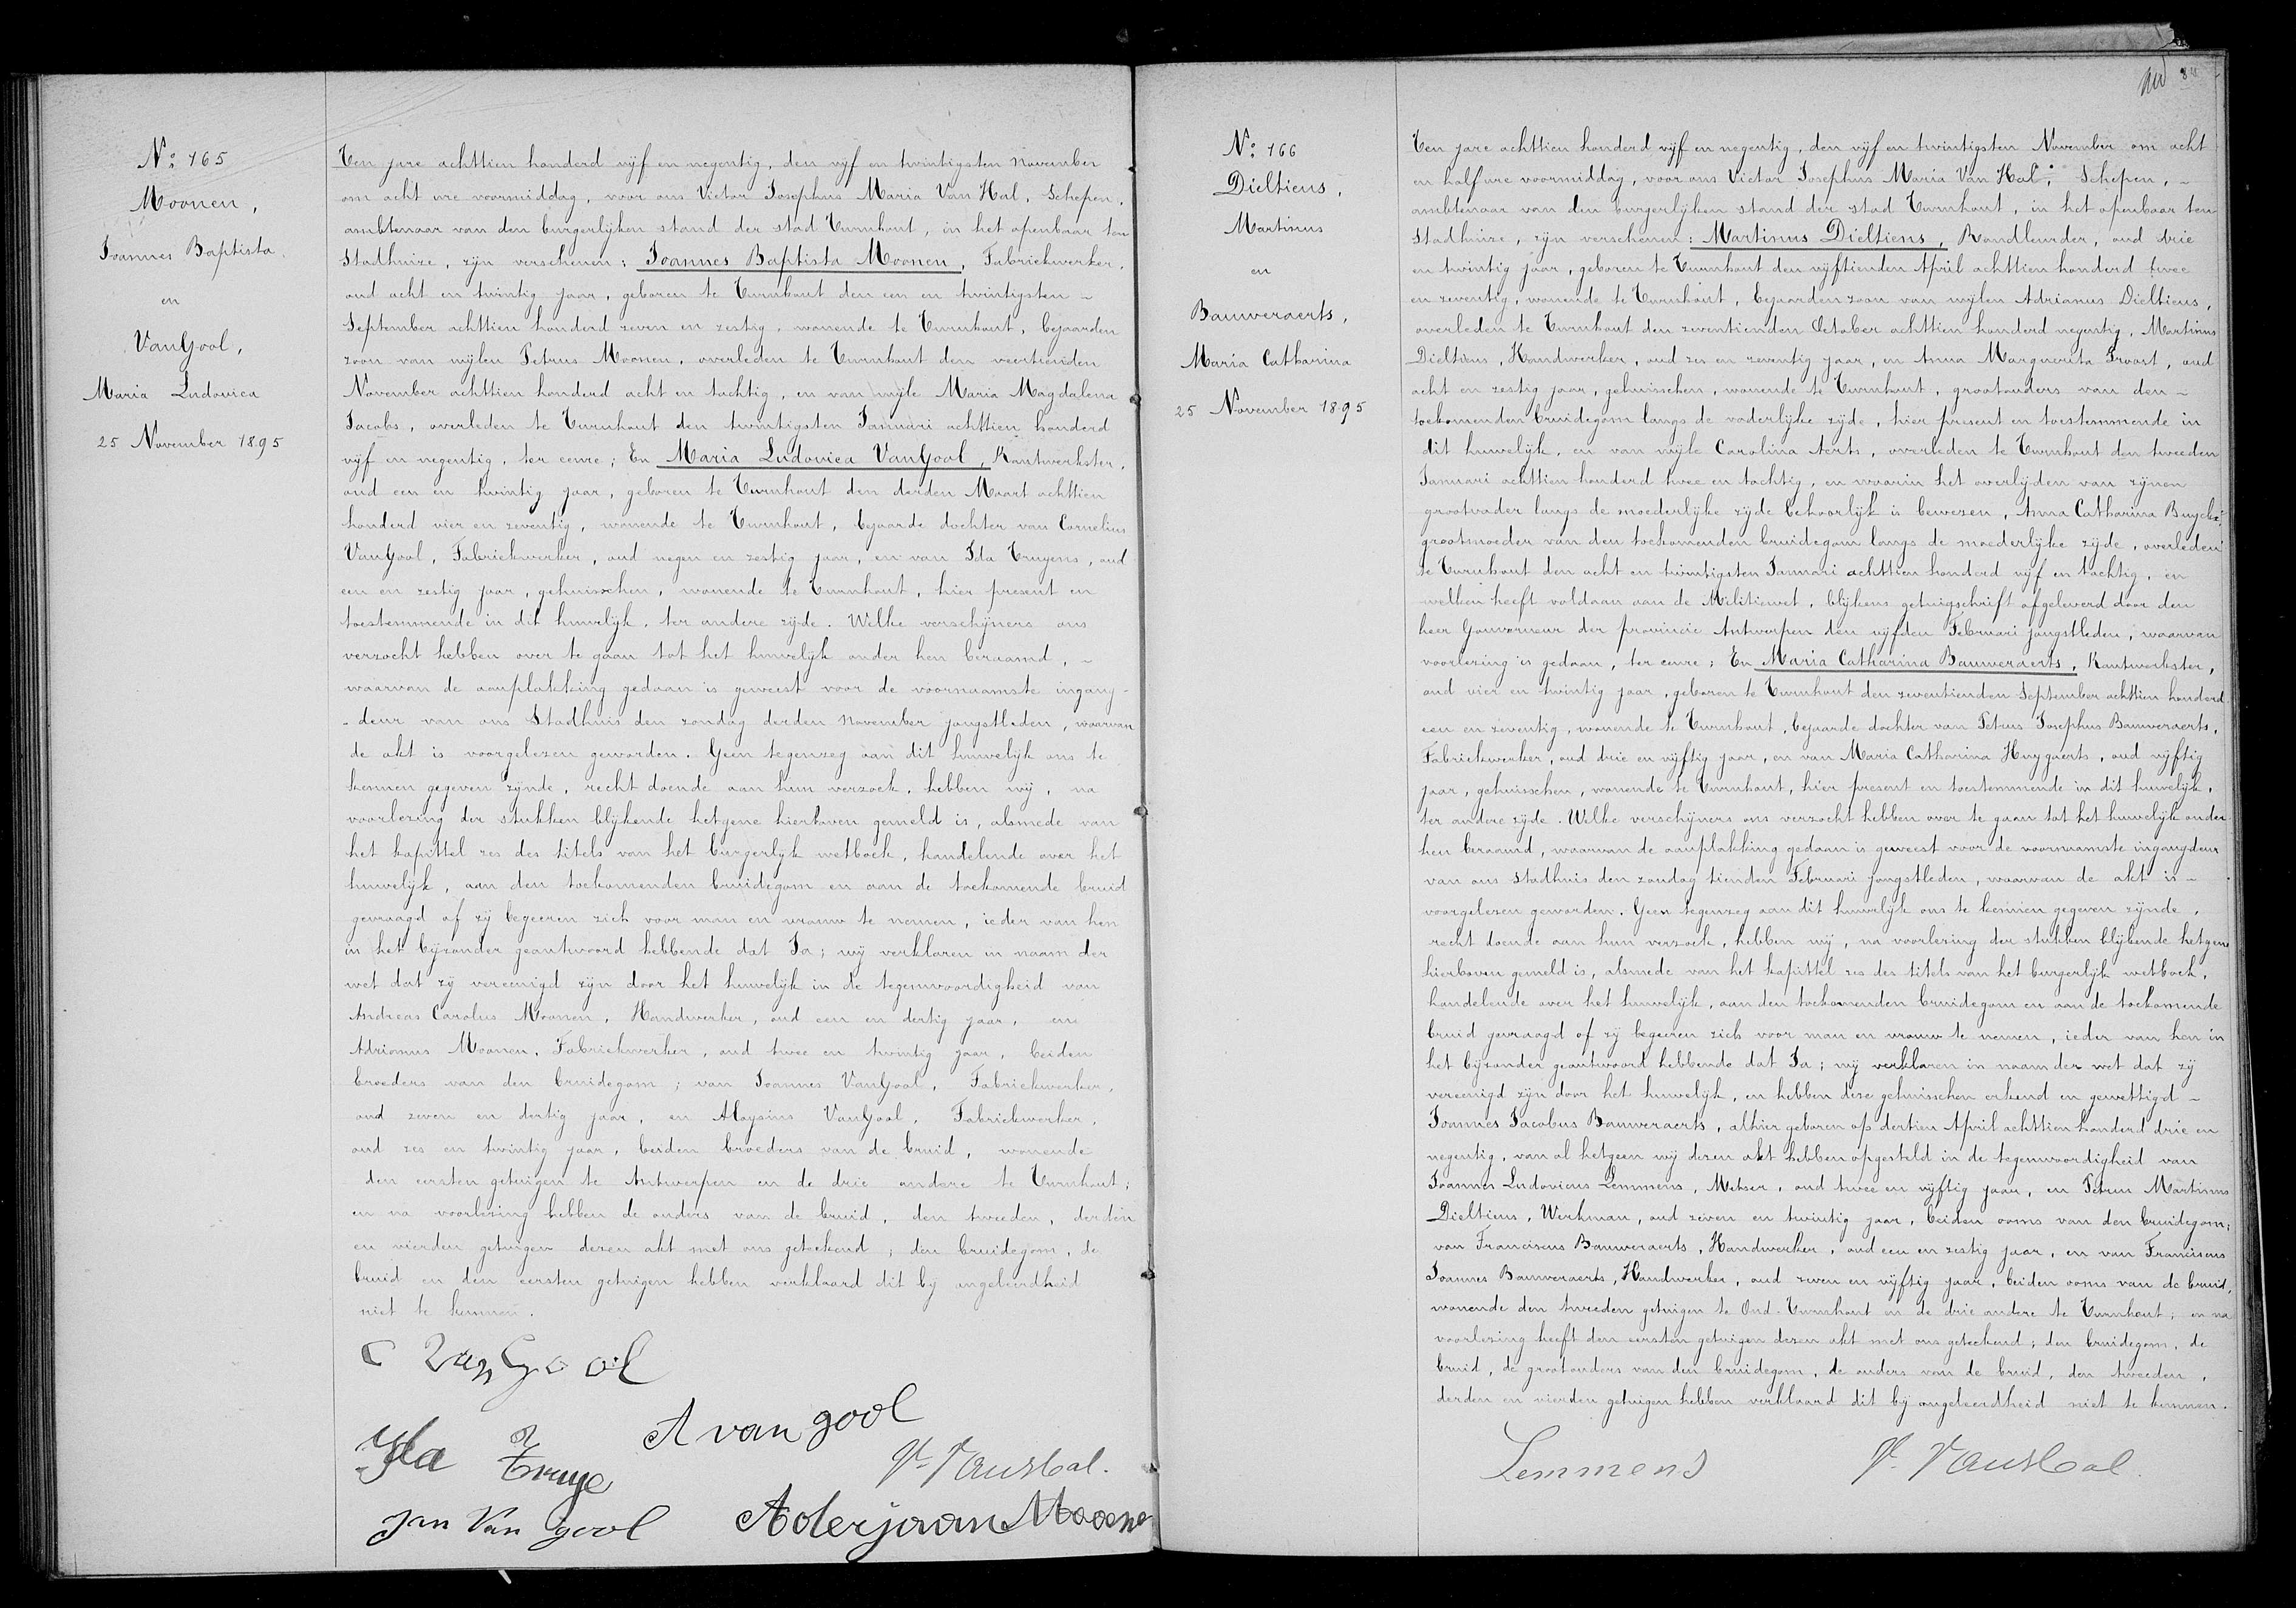 No 165
Moonen,
Joannes Baptista
en
VanGool,
Maria Ludovica
25 November 1895
Ten jare achttien honderd vijf en negentig, den vijf en twintigsten November
om acht ure voormiddag, voor ons Victor Josephus Maria Van Hal, Schepen,
ambtenaar van den burgerlijken stand der stad Turnhout, in het openbaar ten
Stadhuize, zijn verschenen: Joannes Baptista Moonen, Fabriekwerker,
oud acht en twintig jaar, geboren te Turnhout den een en twintigsten –
September achttien honderd zeven en zestig, wonende te Turnhout, bejaarden
zoon van wijlen Petrus Moonen, overleden te Turnhout den veertienden
November achttien honderd acht en tachtig, en van wijle Maria Magdalena
Jacobs, overleden te Turnhout den twintigsten Januari achttien honderd
vijf en negentig, ter eenre; En Maria Ludovica VanGool, Kantwerkster,
oud een en twintig jaar, geboren te Turnhout den derden Maart achttien
honderd vier en zeventig, wonende te Turnhout, bejaarde dochter van Cornelius
VanGool, Fabriekwerker, oud negen en zestig jaar, en van Ida Truyens, oud
een en zestig jaar, gehuisschen, wonende te Turnhout, hier present en
toestemmende in dit huwelijk, ter andere zijde. Welke verschijners ons
verzocht hebben over te gaan tot het huwelijk onder hen beraamd, –
waarvan de aanplakking gedaan is geweest voor de voornaamste ingang-
-deur van ons Stadhuis den zondag derden November jongstleden, waarvan
de akt is voorgelezen geworden. Geen tegenzeg aan dit huwelijk ons te
kennen gegeven zijnde, recht doende aan hun verzoek, hebben wij, na
voorlezing der stukken blijkende hetgene hierboven gemeld is, alsmede van
het kapittel zes des titels van het burgerlijk wetboek, handelende over het
huwelijk, aan den toekomenden bruidegom en aan de toekomende bruid
gevraagd of zij begeeren zich voor man en vrouw te nemen, ieder van hen
in het bijzonder geantwoord hebbende dat Ja; wij verklaren in naam der
wet dat zij vereenigd zijn door het huwelijk in de tegenwoordigheid van
Andreas Carolus Moonen, Handwerker, oud een en dertig jaar, en
Adrianus Moonen, Fabriekwerker, oud twee en twintig jaar, beiden
broeders van den bruidegom; van Joannes VanGool, Fabriekwerker,
oud zeven en dertig jaar, en Aloysius VanGool, Fabriekwerker,
oud zes en twintig jaar, beiden broeders van de bruid, wonende
den eersten getuigen te Antwerpen en de drie andere te Turnhout;
en na voorlezing hebben de ouders van de bruid, den tweeden, derden
en vierden getuigen dezen akt met ons geteekend; den bruidegom, de
bruid en den eersten getuigen hebben verklaard dit bij ongeleerdheid
niet te kunnen.
C VanGool
A van gool
Ida Truye
V. VanHal.
Jan Van gool
Aderjaan Moone
No 166
Dieltiens,
Martinus
en
Bauweraerts,
Maria Catharina
25 November 1895
Ten jare achttien honderd vijf en negentig, den vijf en twintigsten November om acht
en half ure voormiddag, voor ons Victor Josephus Maria Van Hal, Schepen, –
ambtenaar van den burgerlijken stand der stad Turnhout, in het openbaar ten
Stadhuize, zijn verschenen: Martinus Dieltiens, Randleurder, oud drie
en twintig jaar, geboren te Turnhout den vijftienden April achttien honderd twee
en zeventig, wonende te Turnhout, bejaarden zoon van wijlen Adrianus Dieltiens,
overleden te Turnhout den zeventienden October achttien honderd negentig, Martinus
Dieltiens, Handwerker, oud zes en zeventig jaar, en Anna Margareta Proost, oud
acht en zestig jaar, gehuisschen, wonende te Turnhout, grootouders van den –
toekomenden bruidegom langs de vaderlijke zijde, hier present en toestemmende in
dit huwelijk, en van wijle Carolina Aerts, overleden te Turnhout den tweeden
Januari achttien honderd twee en tachtig, en waarin het overlijden van zijnen
grootvader langs de moederlijke zijde behoorlijk is bewezen, Anna Catharina Buyckx,
grootmoeder van den toekomenden bruidegom langs de moederlijke zijde, overleden
te Turnhout den acht en twintigsten Januari achttien honderd vijf en tachtig, en
welken heeft voldaan aan de Militiewet, blijkens getuigschrift afgeleverd door den
heer Gouverneur der provincie Antwerpen den vijfden Februari jongstleden, waarvan
voorlezing is gedaan, ter eenre; En Maria Catharina Bauweraerts, Kantwerkster,
oud vier en twintig jaar, geboren te Turnhout den zeventienden September achttien honderd
een en zeventig, wonende te Turnhout, bejaarde dochter van Petrus Josephus Bauweraerts,
Fabriekwerker, oud drie en vijftig jaar, en van Maria Catharina Huygaerts, oud vijftig
jaar, gehuisschen, wonende te Turnhout, hier present en toestemmende in dit huwelijk,
ter andere zijde. Welke verschijners ons verzocht hebben over te gaan tot het huwelijk onder
hen beraamd, waarvan de aanplakking gedaan is geweest voor de voornaamste ingangdeur
van ons stadhuis den zondag tienden Februari jongstleden, waarvan de akt is –
voorgelezen geworden. Geen tegenzeg aan dit huwelijk ons te kennen gegeven zijnde,
recht doende aan hun verzoek, hebben wij, na voorlezing der stukken blijkende hetgene
hierboven gemeld is, alsmede van het kapittel zes des titels van het burgerlijk wetboek,
handelende over het huwelijk, aan den toekomenden bruidegom en aan de toekomende
bruid gevraagd of zij begeeren zich voor man en vrouw te nemen, ieder van hen in
het bijzonder geantwoord hebbende dat Ja; wij verklaren in naam der wet dat zij
vereenigd zijn door het huwelijk, en hebben deze gehuisschen erkend en gewettigd –
Joannes Jacobus Bauweraerts, alhier geboren op dertien April achttien honderd drie en
negentig, van al hetgeen wij dezen akt hebben opgesteld in de tegenwoordigheid van
Joannes Ludovicus Lemmens, Metser, oud twee en vijftig jaar, en Petrus Martinus
Dieltiens, Werkman, oud zeven en twintig jaar, beiden ooms van den bruidegom;
van Franciscus Bauweraerts, Handwerker, oud een en zestig jaar, en van Franciscus
Joannes Bauweraerts, Handwerker, oud zeven en vijftig jaar, beiden ooms van de bruid,
wonende den tweeden getuigen te Oud-Turnhout en de drie andere te Turnhout; en na
voorlezing heeft den eersten getuigen dezen akt met ons geteekend; den bruidegom, de
bruid, de grootouders van den bruidegom, de ouders van de bruid, den tweeden,
derden en vierden getuigen hebben verklaard dit bij ongeleerdheid niet te kunnen.
Lemmens
V. VanHal.